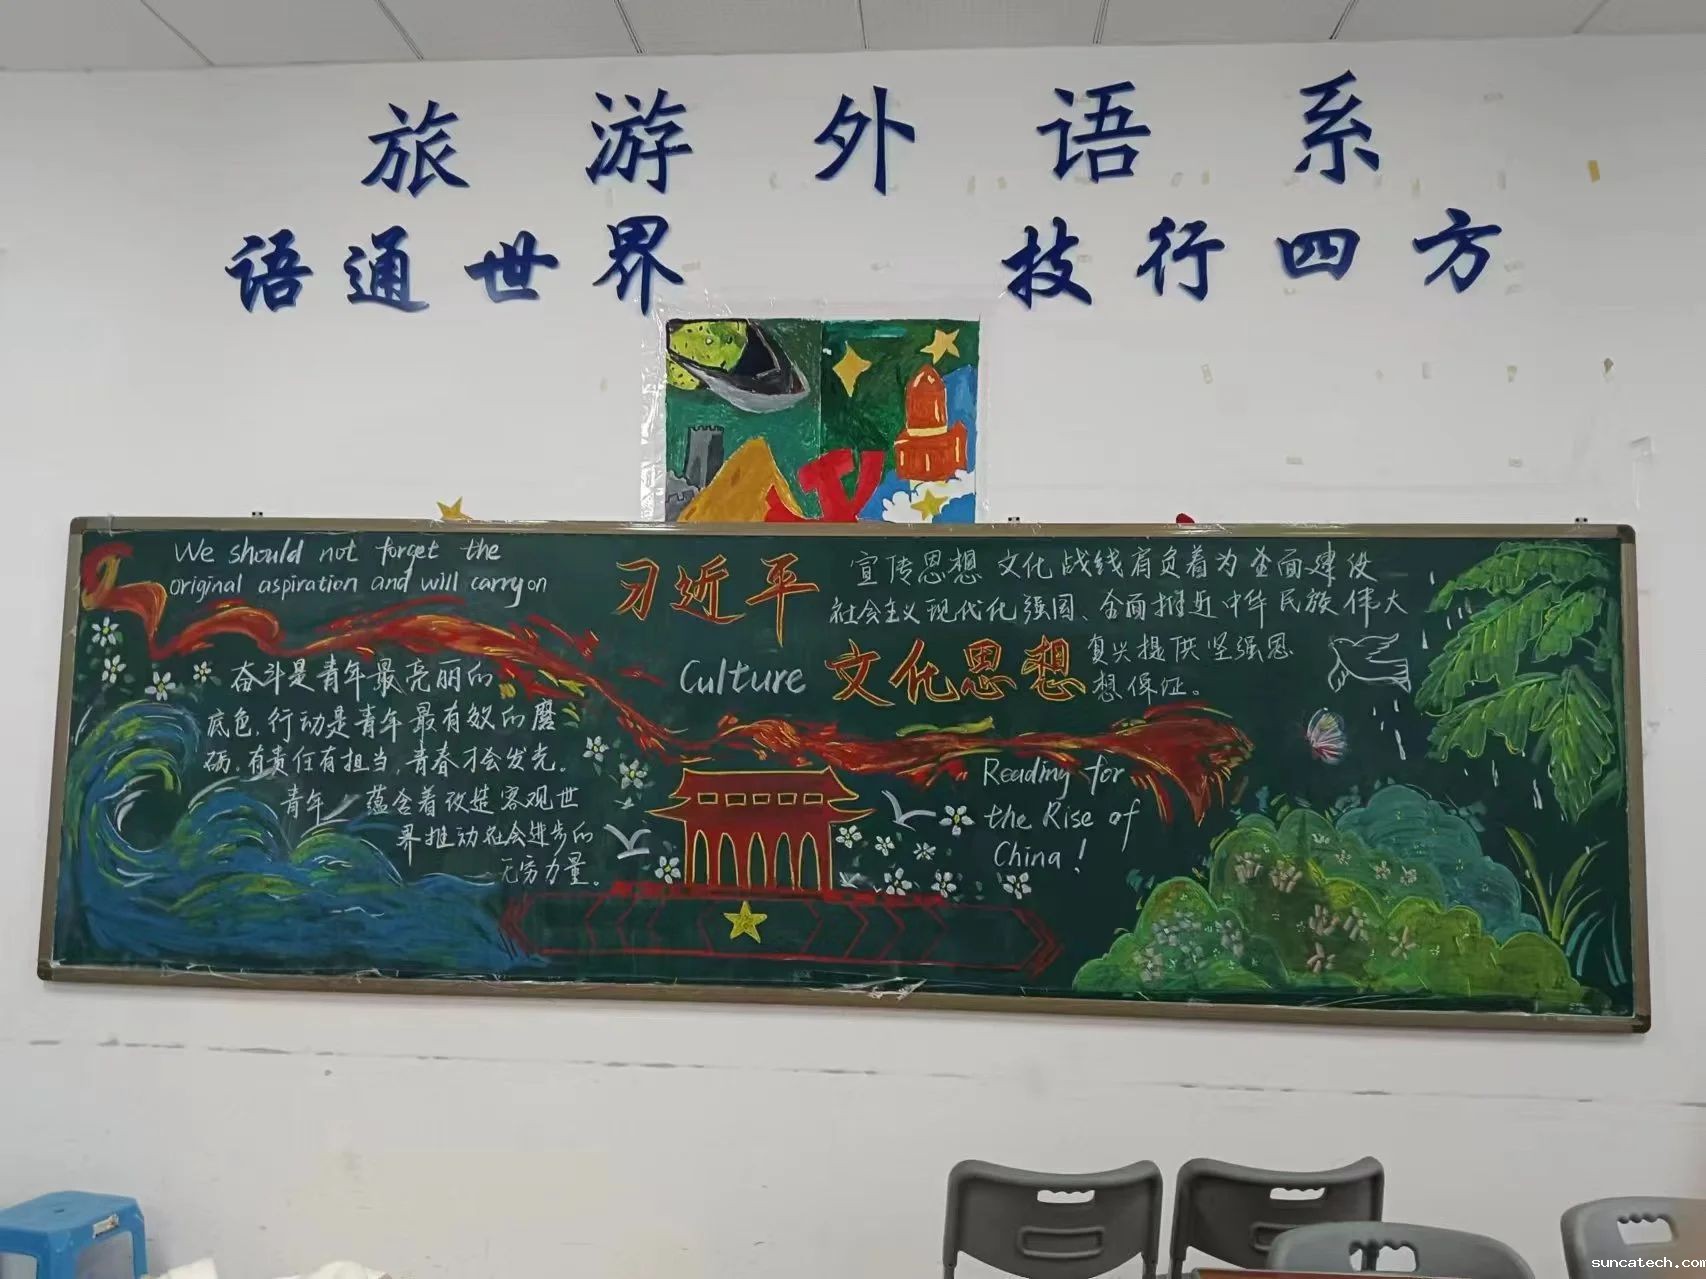 旅游外语系
语通世界 技行四方
We should not forget the
original aspiration and will carry on
习近平
Culture 文化思想
宣传思想文化战线肩负着为全面建设
社会主义现代化强国、全面推进中华民族伟大
复兴提供坚强思
想保证。
奋斗是青年最亮丽的
底色,行动是青年最有效的磨
砺。有责任有担当,青春才会发光。
青年,蕴含着改造客观世
界推动社会进步的
无穷力量。
Reading for
the Rise of
China!
suncatech.com